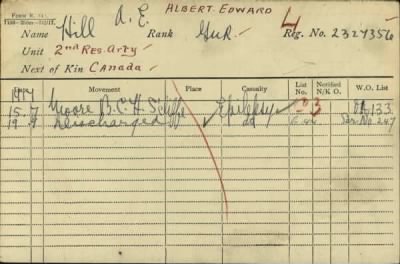 ALBERT EDWARD
FORM R.
Name Hill A. E. Rank Gnr. Reg. No. 2327356
4
Unit 2nd Res. Arty
Next of Kin CANADA
Date Movement Place Casualty List No. Notified N/K O. W.O. List
17
15.7 Moore B. C. H. Epilepsy 133
19.9 Discharged do 247